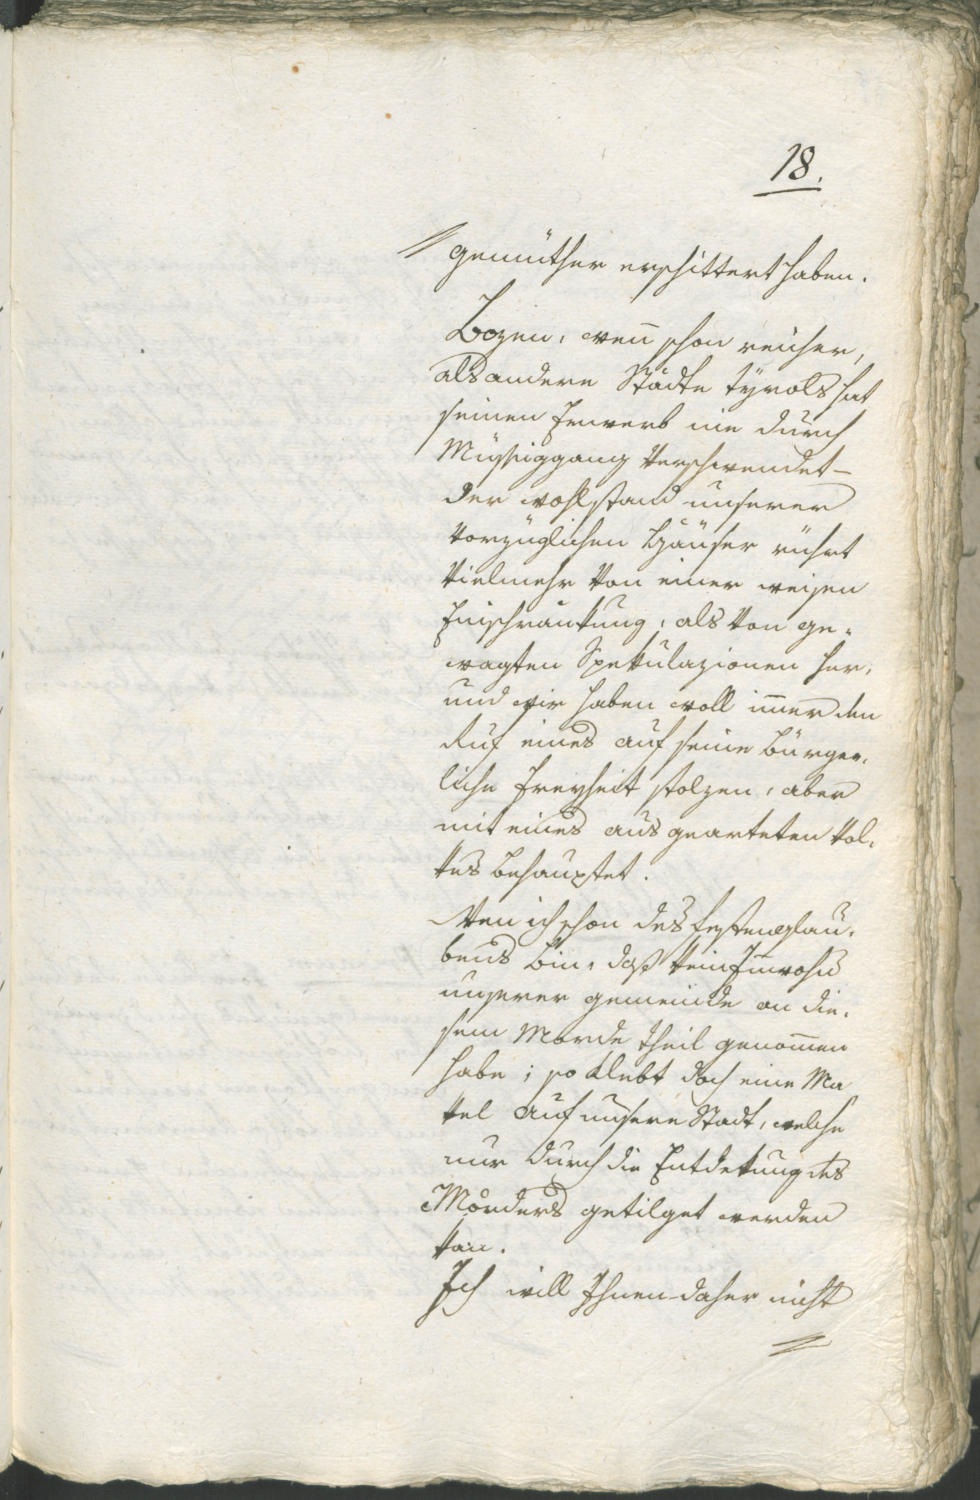 18.
gemüther erschittert haben.
Bozen, wen̄ schon reicher,
als andere Städte Tÿrols hat
seinen Erwerb nie durch
Müssiggang verschwendet –
der Wohlstand unserer
vorzüglichen Häuser rührt
vielmehr von einer weisen
Einschränkung, als von ge-
wagten Spekulazionen her,
und wir haben woll im̄er den
Ruf eines auf seine bürger-
liche Freyheit stolzen, aber
nit eines ausgearteten Vol-
kes behauptet.
Wen ich schon des festen Glau-
bens bin, daß kein Inwohner
unserer Gemeinde an die-
sem Morde theil genom̄en
habe; so klebt doch eine Ma
kel auf unsere Stadt, welche
nur durch die Entdekung des
Mörders getilget werden
kan.
Ich will Ihnen daher nicht